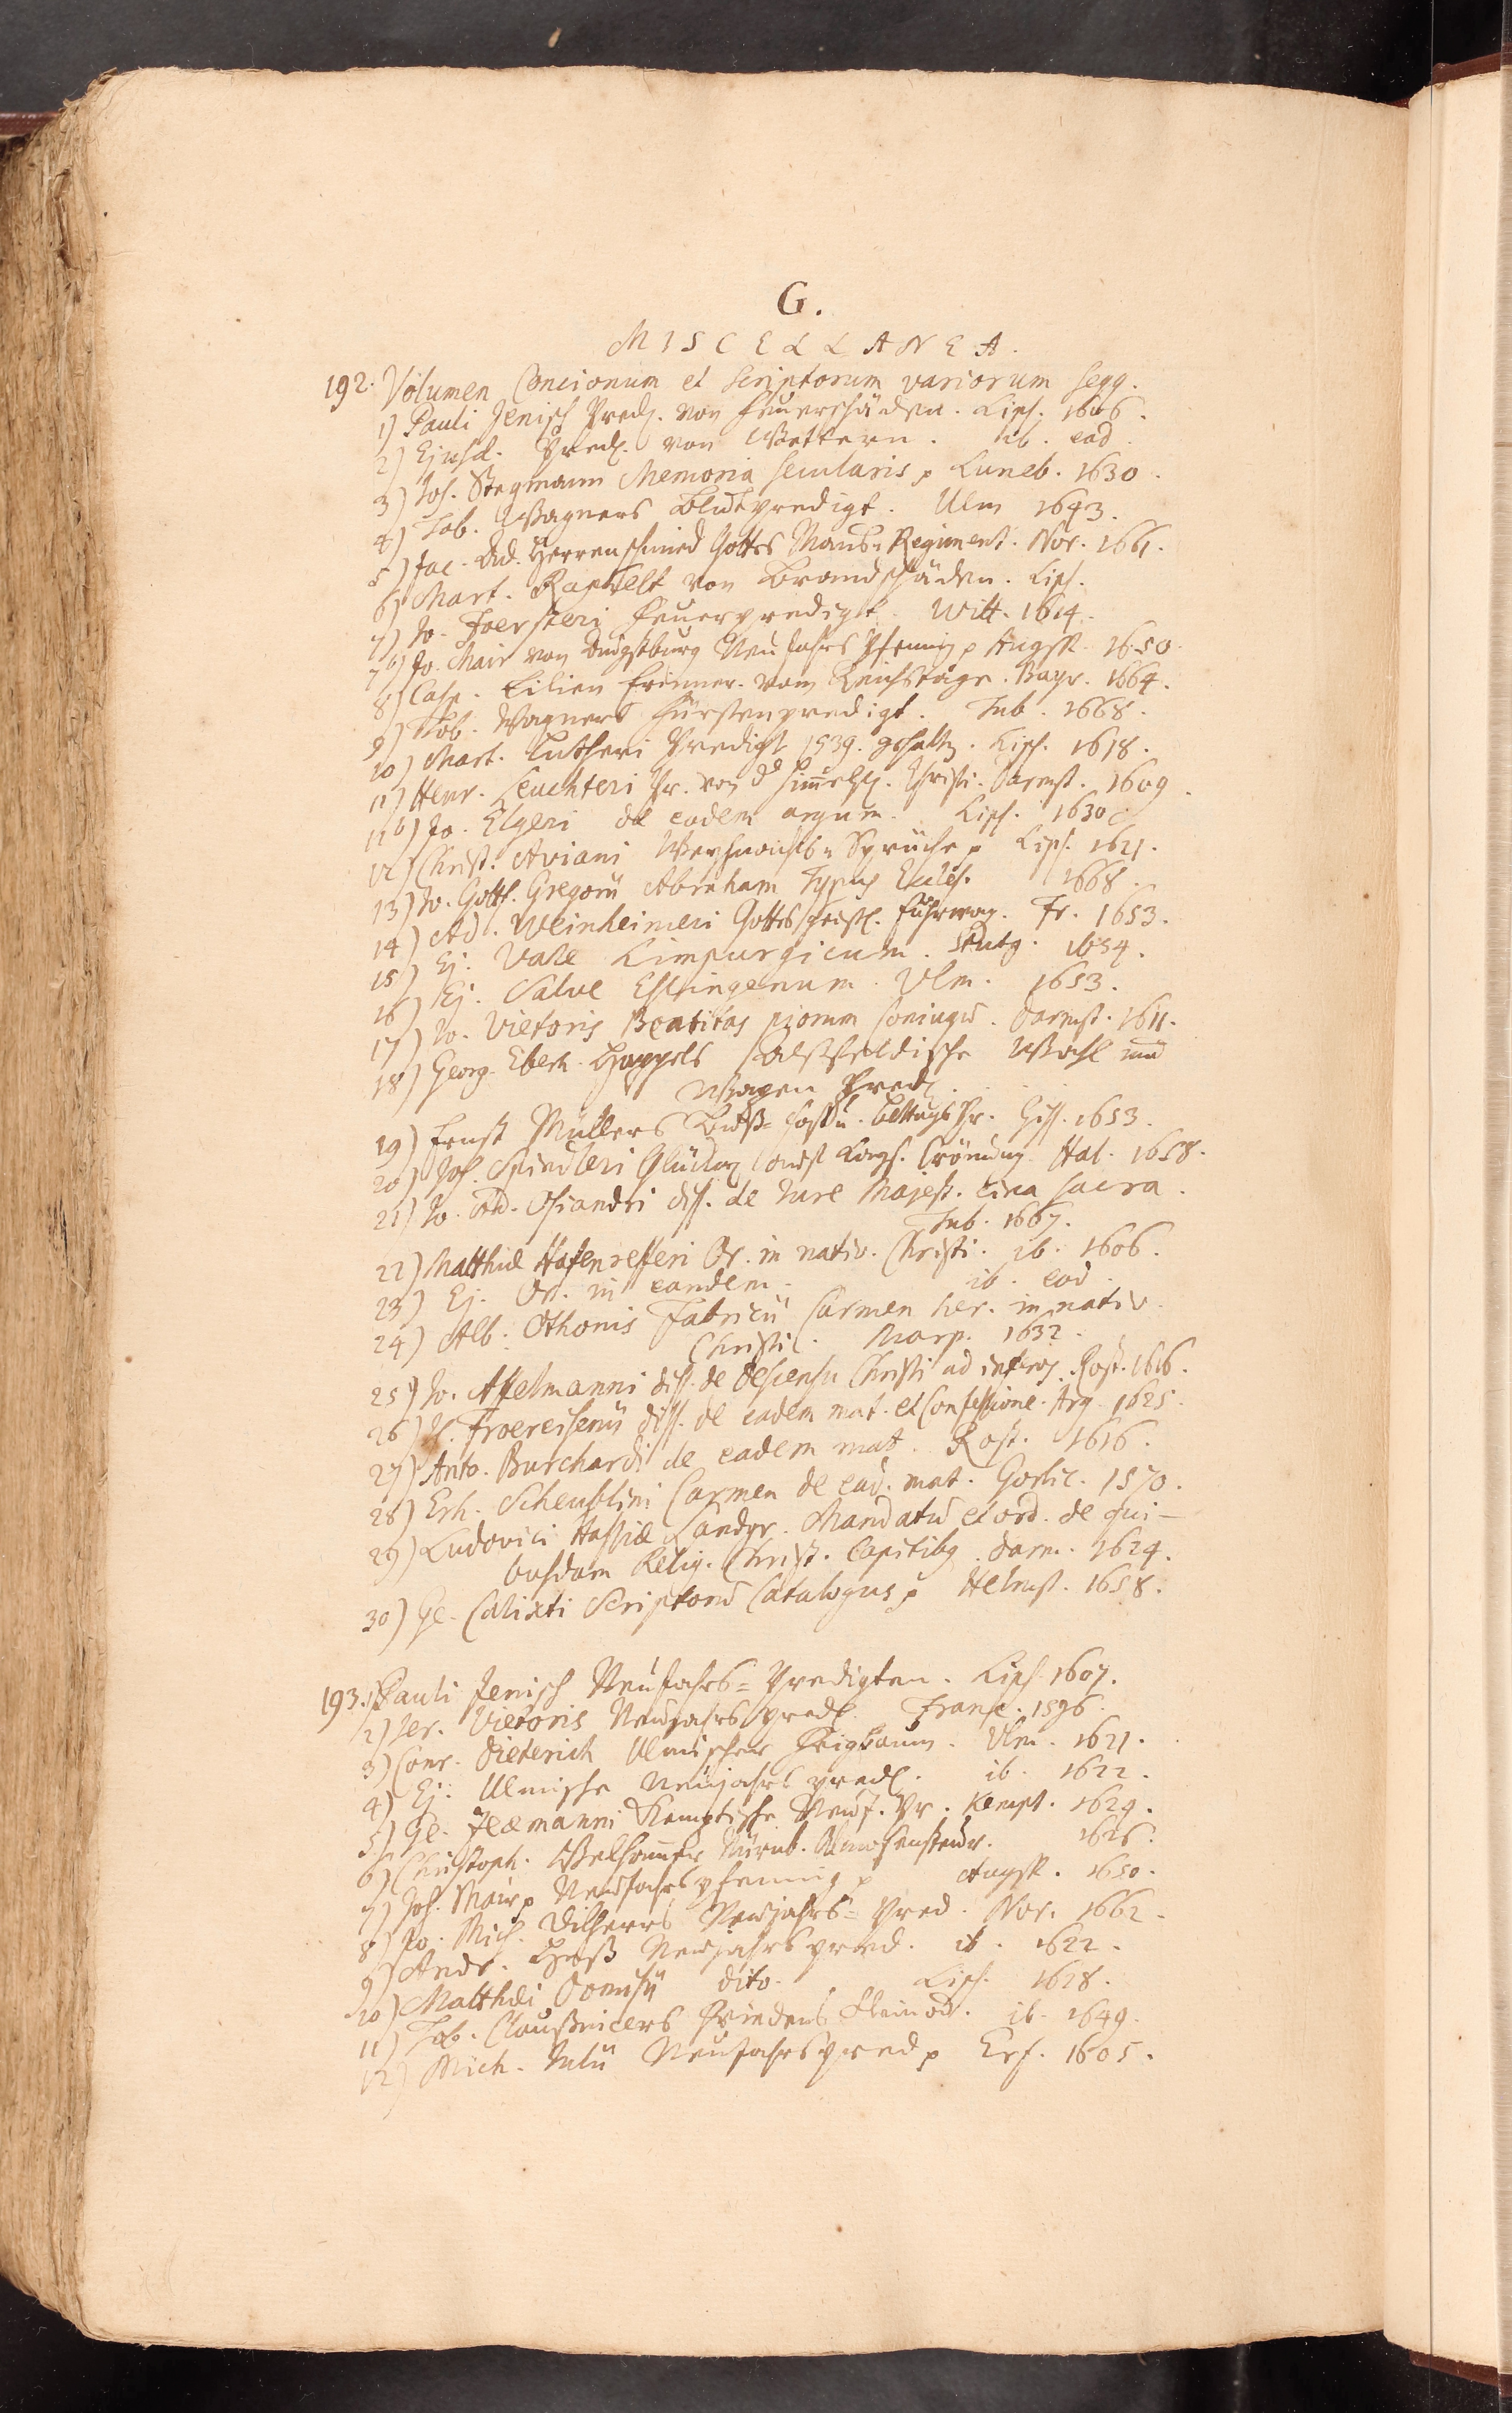 G.
MISCELLANEA.
192. Volumen Concionum et Scriptorum variorum seqq.
1) Pauli Jenisch Pred. von Feuerschäden. Lips. 1606.
2) Ejusd. Pred. von Wettern. ib. eod.
3) Jos. Stegmann Memoria secularis p Luneb. 1630.
4) Tob. Wagners Blutpredigt. Ulm 1643.
5) Jac. Dd. Herrenschmied Gottes Regiment. Nor. 1661.
6) Mart. Raphelt von Brandschäden. Lips.
7) Jo. Foersteri Feuerpredigt. Witt. 1614.
7b) Jo. Mair von Augstburg Neujahrs Pfennig p Augsp. 1650.
8) Casp. Lilien Erinner. vom Reichstage. Bayr. 1664.
9) Tob. Wagners Fürstenpredigt. Tub. 1668.
10) Mart. Lutheri Predigt 1539. gehalten. Lips. 1618.
11) Henr. Leuchteri Pr. von d Himmelf. Christi. Darmst. 1609.
11b) Jo. Elgeri de eadem argum. Lips. 1630
12) Christ. Aviani Weyhnachts-Sprüche p Lips. 1621.
13) Jo. Gottf. Gregorii Abraham Typus Eccles. 1668.
14) Ad. Weinheimeri Gottes geistl. Fuhrwag. Fr. 1653.
15) Ej. Vale Limpurgicum. Stutg. 1654.
16) Ej. Salve Eslingenum. Ulm. 1653.
17) Jo. Vietoris Beatitas piorum coniugu. Darmst. 1611.
18) Georg. Eberh. Happels Wahl und
Wagen Pred.
19) Ernst Müllers Buß- Fast u. Bettags Pr. Giss. 1653.
20) Joh. Spindleri Crönung. Hal. 1658.
21) Jo. Ad. Osiandri diss. de Jure Majest. circa sacra.
Tub. 1667.
22) Matthiae Hafenrefferi Or. in nativ. Christi. ib. 1606.
23) Ej. Or. in eandem. ib. eod.
24) Alb. Othonis Fabricii Carmen her. in nativ.
Christi. Marp. 1632.
25) Jo. Affelmanni diss. de descensu Christi ad inferos. Rost. 1616.
26) Is. Froereisenii diss. de eadem mat. et Confessione. Arg. 1625.
27) Anto. Burchardi de eadem mat. Rost. 1616.
28) Erh. Scheublini Carmen de ead. mat. Gorlic. 1570.
29) Ludovici Hassiae Landgr. Mandatu et ord. de qui-
busdam Relig. Christ. Capitibq. Darm. 1624.
30) Ge. Calixti Scriptoru Catalogus p Helmst. 1658.
193. 1) Pauli Jenisch Neujahrs-Predigten. Lips. 1607.
2) Jer. Vietoris Neujahrs pred. Franc. 1596.
3) Conr. Dieterich Ulmischer Feigbaum. Ulm. 1621.
4) Ej. Ulmische Neujahrs pred. ib. 1622.
5) Ge. Zeaemanni Kemptische Neuj. Pr. Kempt. 1624.
6) Christoph. Welhammer Nürnb. 1626.
7) Joh. Mair p Neujahrs pfennig p Augsp. 1650.
8) Jo. Mich. Dilherrs Neujahrs-Pred. Nor. 1662.
9) Andr. Neujahrs pred. ib. 1622.
10) Matthaei Domisii dito. Lips. 1628.
11) Tob. Claußnicers Friedens Kleinod. ib. 1649.
12) Mich. Julii Neujahrs pred p Erf. 1605.